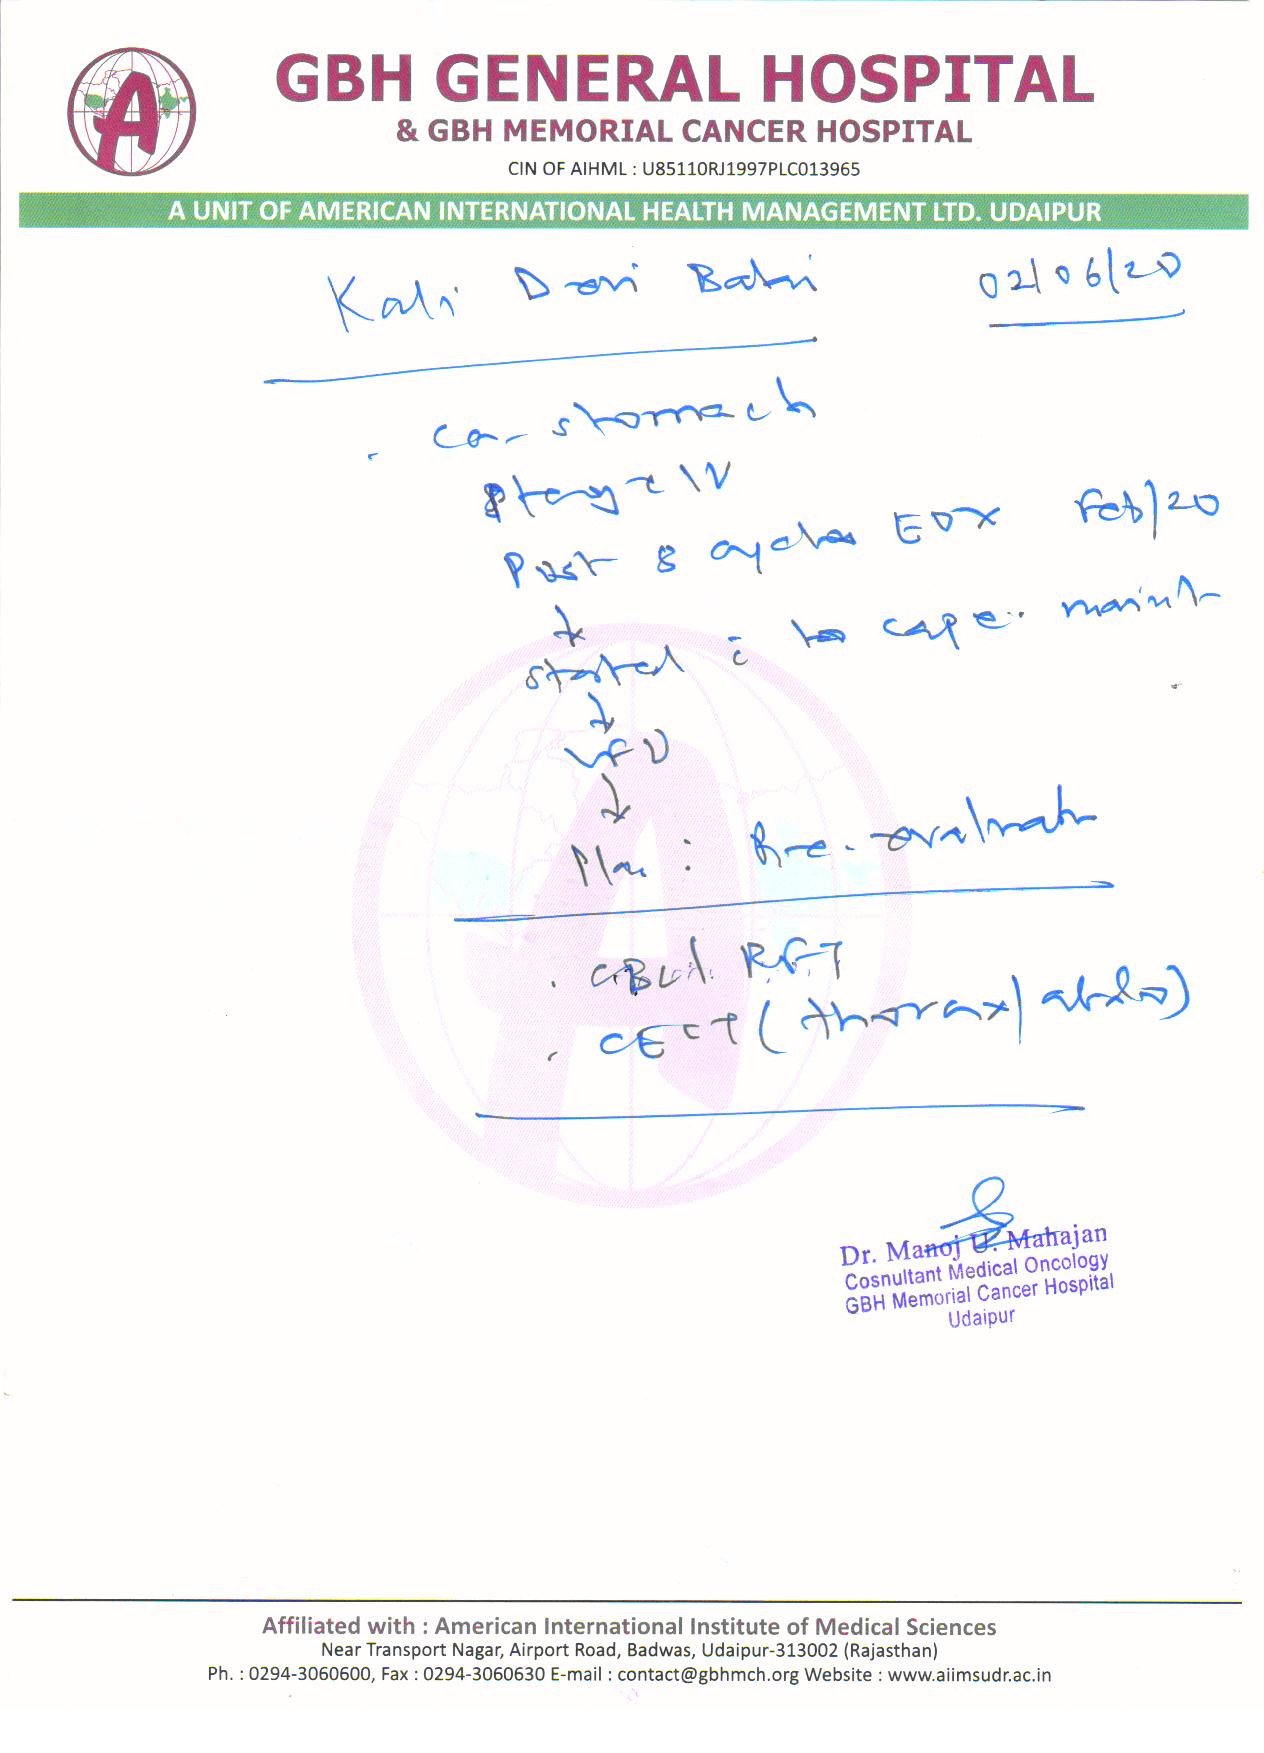 A
GBH GENERAL HOSPITAL
& GBH MEMORIAL CANCER HOSPITAL
CIN OF AIHML : U85110RJ1997PLC013965
A UNIT OF AMERICAN INTERNATIONAL HEALTH MANAGEMENT LTD. UDAIPUR
Kali Devi 02/06/20
Ca- stomach
Stage IV
Post 8 cycles EOX Feb/20
started c to cape. maint
LFU
Plan : Re-evaluate
RFT
CECT (thorax/abdo)
Dr. Manoj U. Mahajan
Cosnultant Medical Oncology
GBH Memorial Cancer Hospital
Udaipur
Affiliated with : American International Institute of Medical Sciences
Near Transport Nagar, Airport Road, Badwas, Udaipur-313002 (Rajasthan)
Ph. : 0294-3060600, Fax : 0294-3060630 E-mail : contact@gbhmch.org Website : www.aiimsudr.ac.in